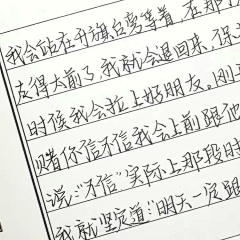 我会站在升旗台旁等着，在那
走得太前了，我就会退回来，保
时候我会拉上好朋友。刚
赌你信不信我会上前跟他
说：“不信”实际上那段时
我就坚定道：“明天一定跟